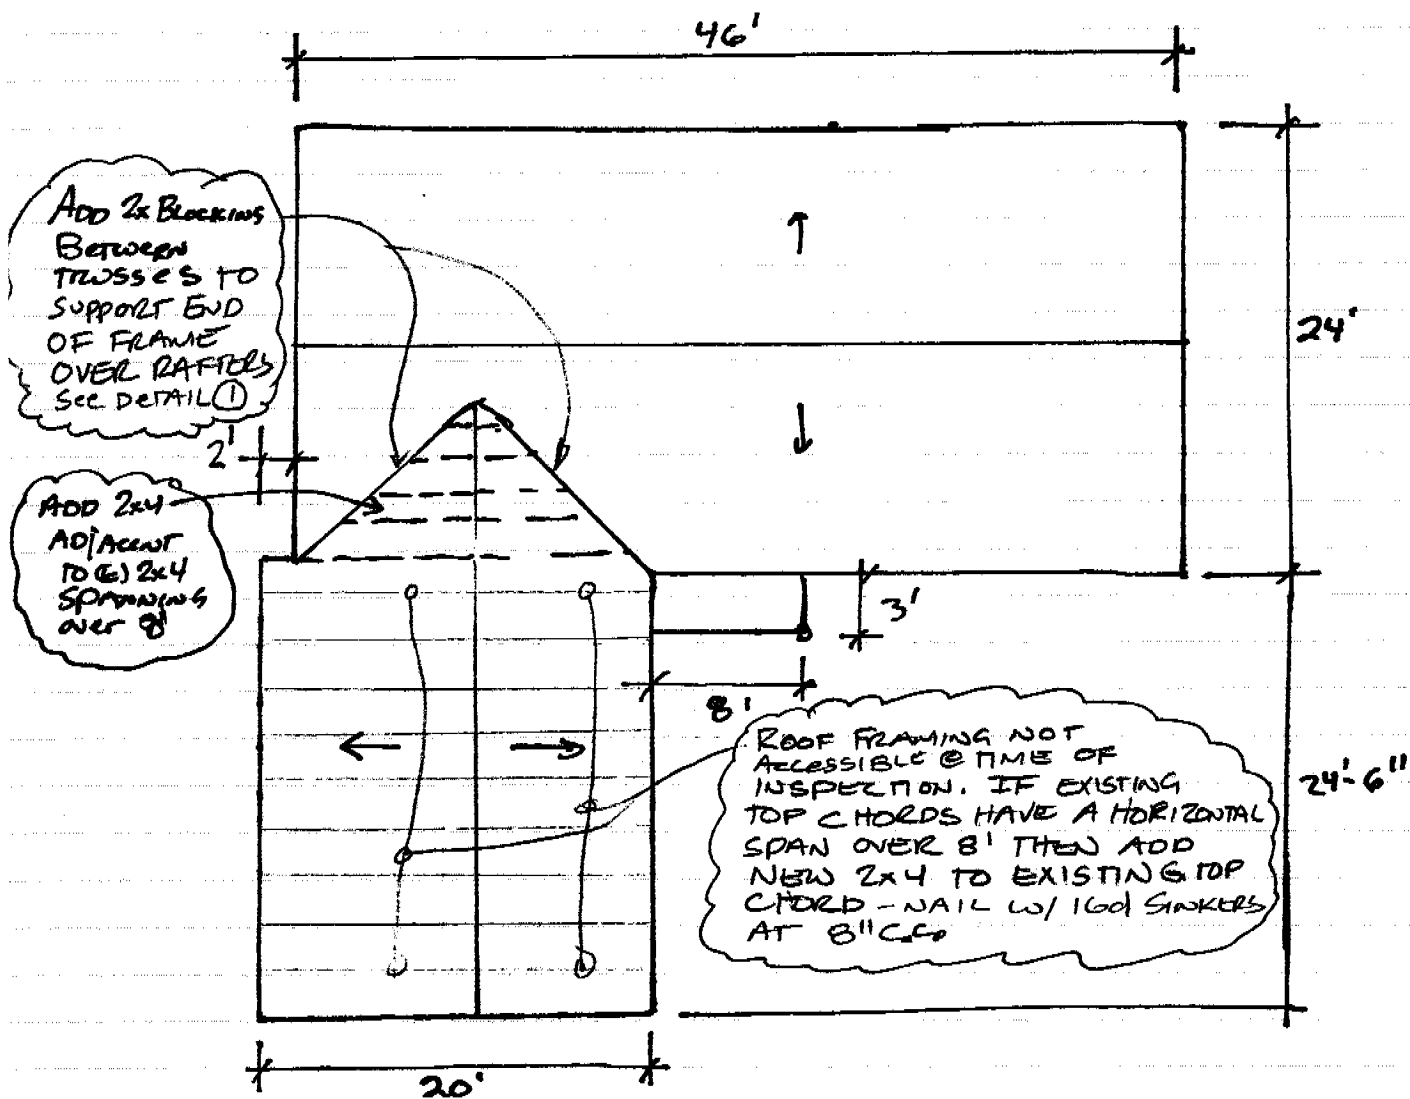 46'
ADD 2x BLOCKING
BETWEEN
TRUSSES TO
SUPPORT END
OF FRAME
OVER RAFTERS
SEE DETAIL 1
24'
2'
ADD 2x4
ADJACENT
TO (E) 2x4
SPANNING
over 8'
3'
8'
ROOF FRAMING NOT
ACCESSIBLE @ TIME OF
INSPECTION. IF EXISTING
TOP CHORDS HAVE A HORIZONTAL
SPAN OVER 8' THEN ADD
NEW 2x4 TO EXISTING TOP
CHORD - NAIL W/ 16d SINKERS
AT 8" C.C.
24'-6"
20'